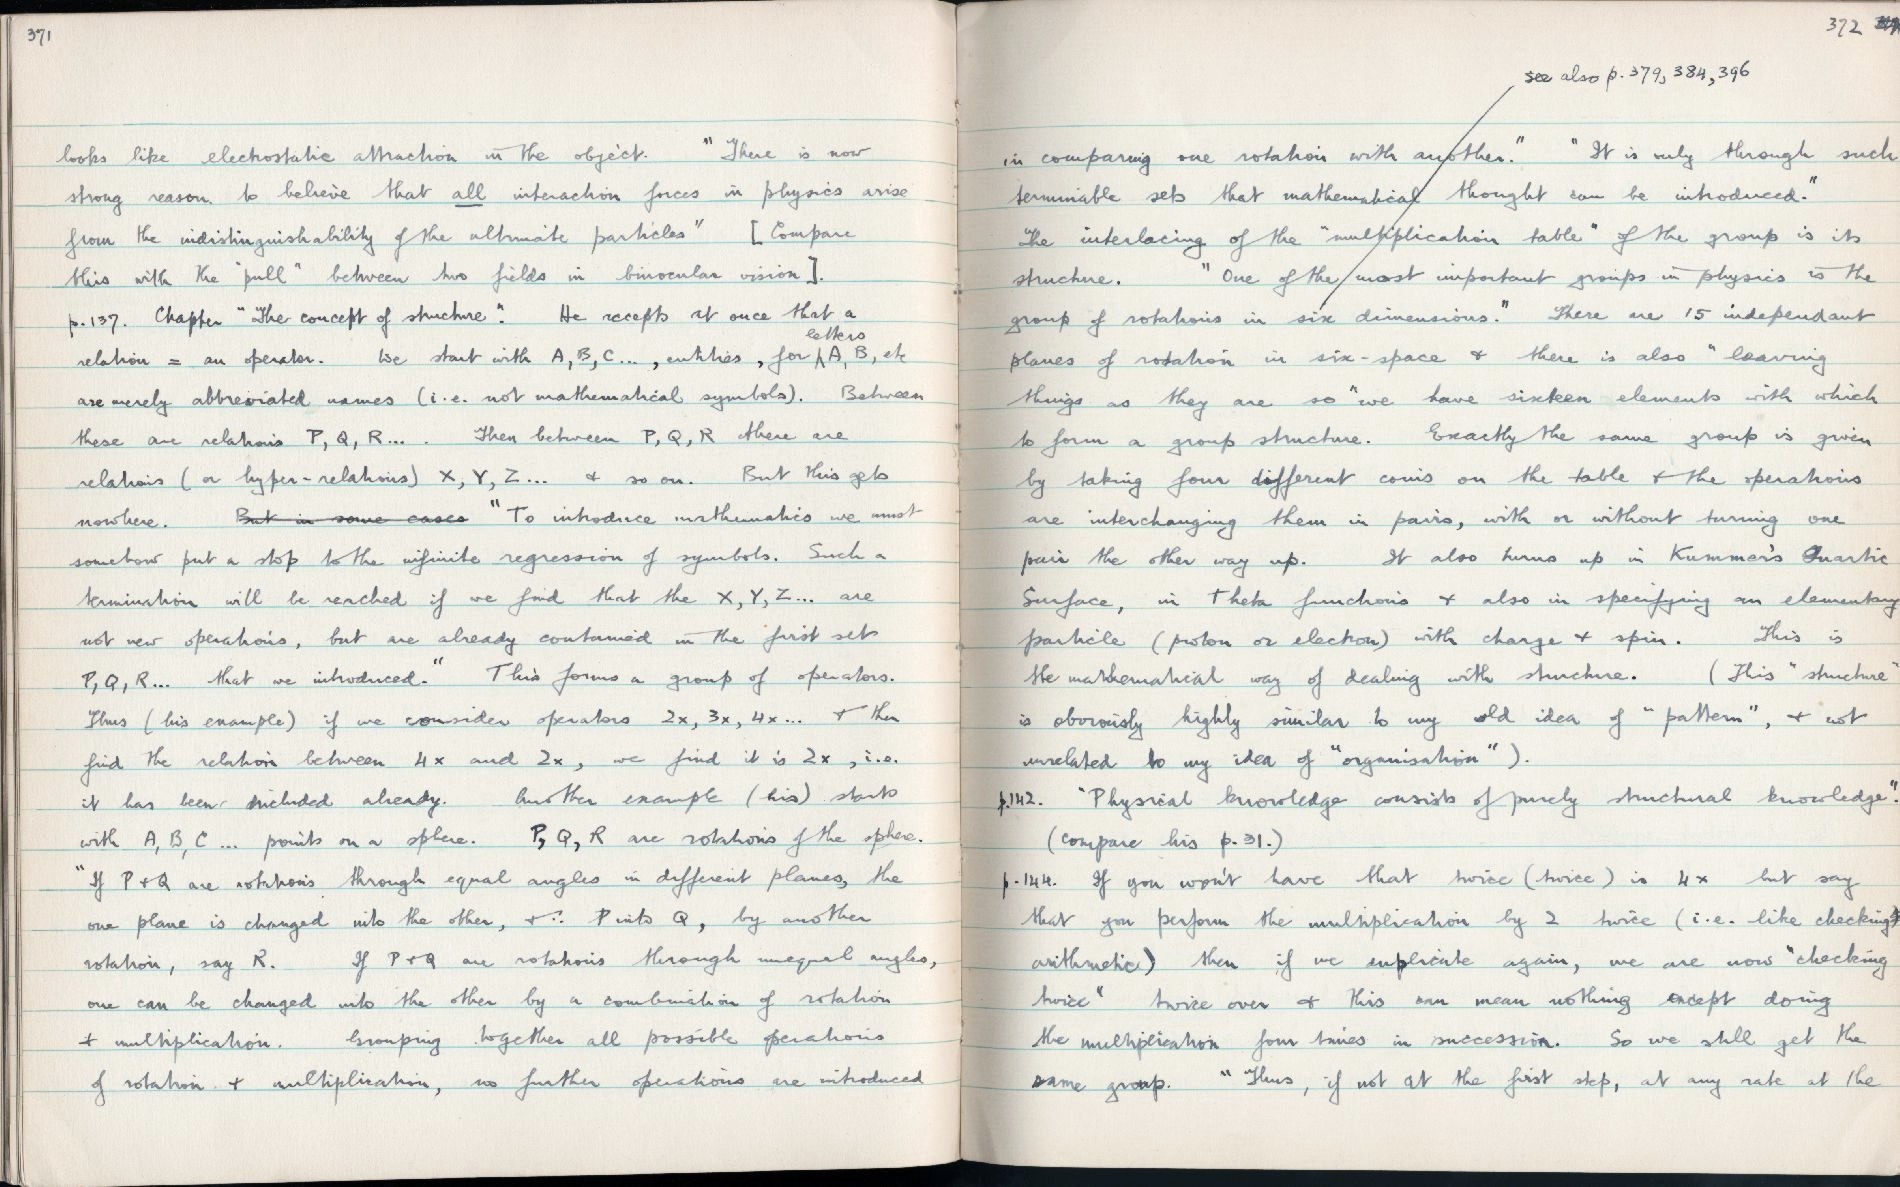 371
looks like electrostatic attraction in the object. "There is now
strong reason to believe that all interaction forces in physics arise
from the indistinguishability of the ultimate particles" [Compare
this with the "pull" between two fields in binocular vision].
p.137. Chapter "The concept of structure". He accepts at once that a
relation = an operator. We start with A, B, C ... , entities, for letters A, B, etc
are merely abbreviated names (i.e. not mathematical symbols). Between
these are relations P, Q, R ... . Then between P, Q, R there are
relations (or hyper-relations) X, Y, Z ... & so on. But this gets
nowhere. But in some cases "To introduce mathematics we must
somehow put a stop to the infinite regression of symbols. Such a
termination will be reached if we find that the X, Y, Z ... are
not new operations, but are already contained in the first set
P, Q, R ... that we introduced." This forms a group of operators.
Thus (his example) if we consider operators 2x, 3x, 4x ... & then
find the relation between 4x and 2x, we find it is 2x, i.e.
it has been included already. Another example (his) starts
with A, B, C ... points on a sphere. P, Q, R are rotations of the sphere.
"If P & Q are rotations through equal angles in different planes, the
one plane is changed into the other, & ∴ P into Q, by another
rotation, say R. If P & Q are rotations through unequal angles,
one can be changed into the other by a combination of rotation
& multiplication. Grouping together all possible operations
of rotation & multiplication, no further operations are introduced
372
see also p. 379, 384, 396
in comparing one rotation with another." "It is only through such
terminable sets that mathematical thought can be introduced."
The interlacing of the "multiplication table" of the group is its
structure. "One of the most important groups in physics is the
group of rotations in six dimensions." There are 15 independant
planes of rotation in six-space & there is also "leaving
things as they are so "we have sixteen elements with which
to form a group structure. Exactly the same group is given
by taking four different coins on the table & the operations
are interchanging them in pairs, with or without turning one
pair the other way up. It also turns up in Kummer's Quartic
Surface, in Theta functions & also in specifying an elementary
particle (proton or electron) with charge & spin. This is
the mathematical way of dealing with structure. (This "structure"
is obviously highly similar to my old idea of "pattern", & not
unrelated to my idea of "organisation").
p.142. "Physical knowledge consists of purely structural knowledge".
(compare his p.31.)
p.144. If you won't have that twice (twice) is 4x but say
that you perform the multiplication by 2 twice (i.e. like checking
arithmetic) then if we duplicate again, we are now "checking
twice" twice over & this can mean nothing except doing
the multiplication four times in succession. So we still get the
same group. "Thus, if not at the first step, at any rate at the